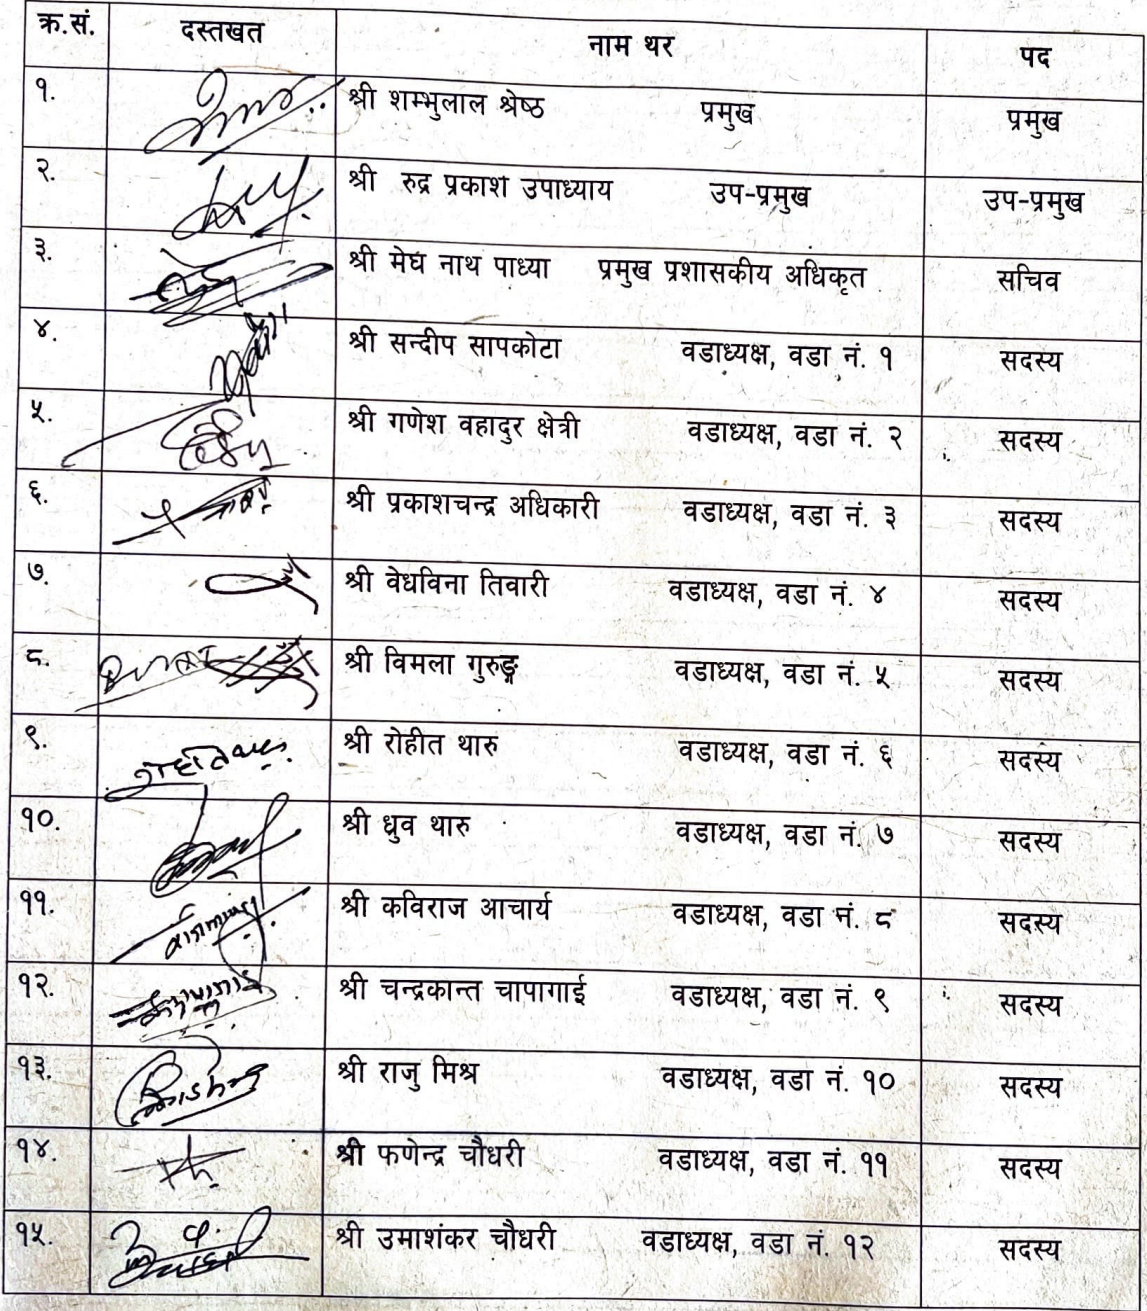 क्र.सं. दस्तखत नाम थर पद
१. श्री शम्भुलाल श्रेष्ठ प्रमुख प्रमुख
२. श्री रुद्र प्रकाश उपाध्याय उप-प्रमुख उप-प्रमुख
३. श्री मेघ नाथ पाध्या प्रमुख प्रशासकीय अधिकृत सचिव
४. श्री सन्दीप सापकोटा वडाध्यक्ष, वडा नं. १ सदस्य
५. श्री गणेश वहादुर क्षेत्री वडाध्यक्ष, वडा नं. २ सदस्य
६. श्री प्रकाशचन्द्र अधिकारी वडाध्यक्ष, वडा नं. ३ सदस्य
७. श्री वेधविना तिवारी वडाध्यक्ष, वडा नं. ४ सदस्य
८. श्री विमला गुरुङ्ग वडाध्यक्ष, वडा नं. ५ सदस्य
९. श्री रोहीत थारु वडाध्यक्ष, वडा नं. ६ सदस्य
१०. श्री ध्रुव थारु वडाध्यक्ष, वडा नं. ७ सदस्य
११. श्री कविराज आचार्य वडाध्यक्ष, वडा नं. ८ सदस्य
१२. श्री चन्द्रकान्त चापागाई वडाध्यक्ष, वडा नं. ९ सदस्य
१३. श्री राजु मिश्र वडाध्यक्ष, वडा नं. १० सदस्य
१४. श्री फणेन्द्र चौधरी वडाध्यक्ष, वडा नं. ११ सदस्य
१५. श्री उमाशंकर चौधरी वडाध्यक्ष, वडा नं. १२ सदस्य